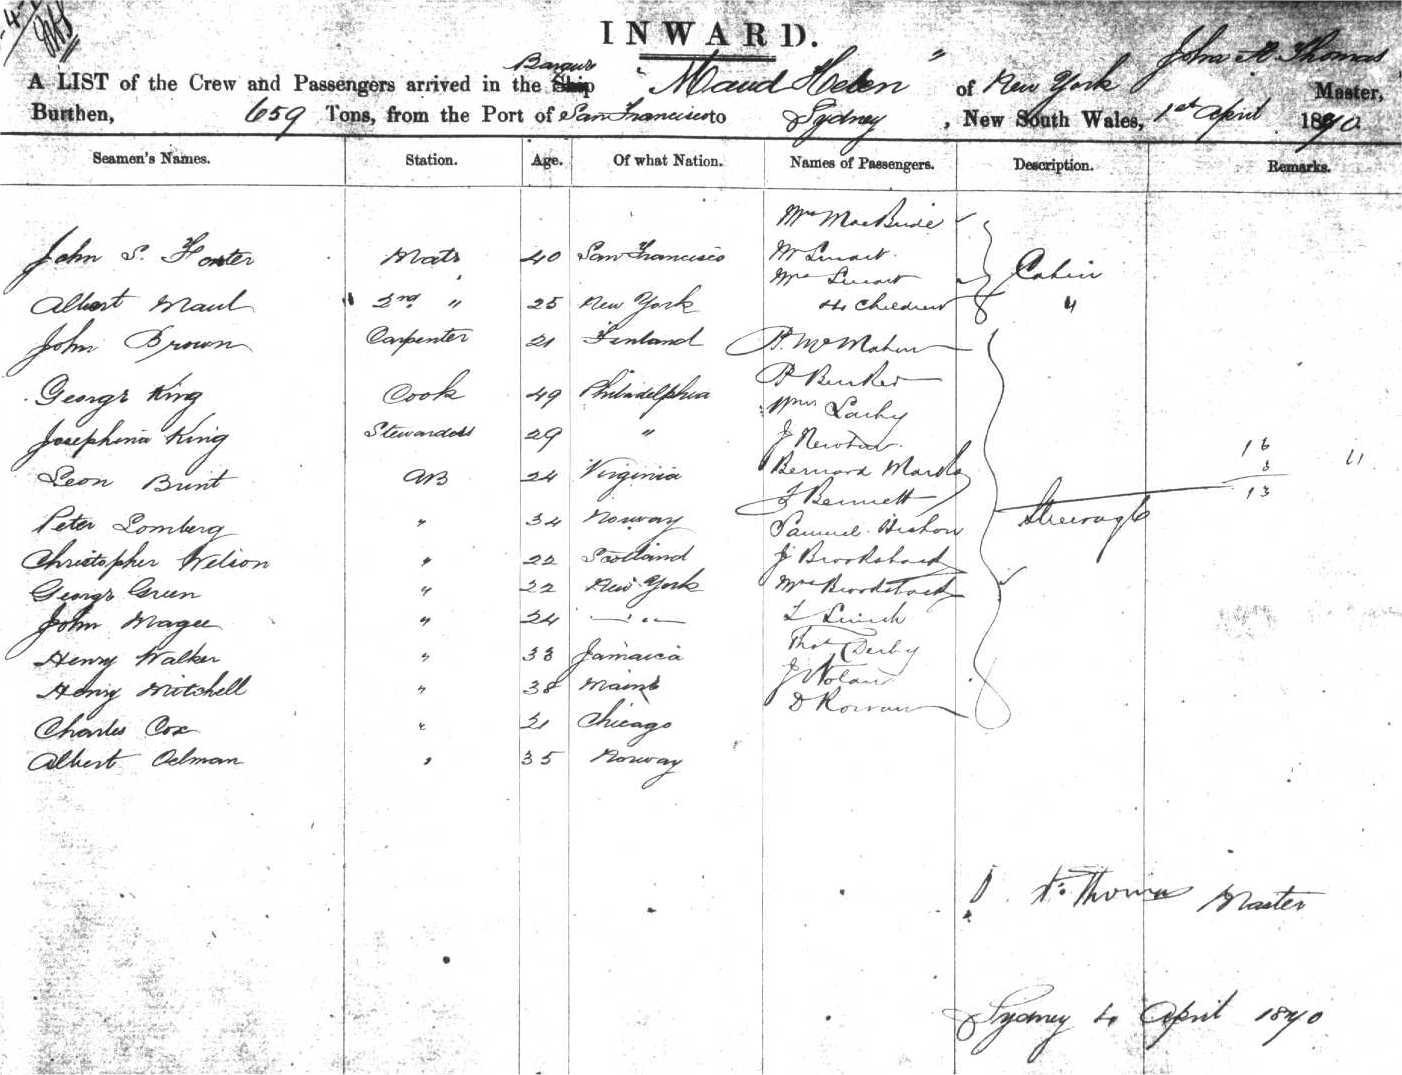 INWARD.
Barque
A LIST of the Crew and Passengers arrived in the Ship "Maud Helen" of New York John A Thomas Master,
Burthen, 659 Tons, from the Port of San Francisco to Sydney, New South Wales, 1st April 1870.
Seamen's Names. Station. Age. Of what Nation. Names of Passengers. Description. Remarks.
Mrs MacBride
John S. Foster Mate 40 San Francisco Mr
Mrs Cabin
Albert Maul 2nd " 25 New York 4 Children "
John Brown Carpenter 21 Finland P. McMahon
George King Cook 49 Philadelphia P
Wm
Josephina King Stewardess 29 " J
16
Leon Brint AB 24 Virginia Bernard
3
13
J Bennett
Peter Lomberg " 34 Norway Samuel Steerage
Christopher Wilson " 22 Scotland J
George Green " 22 New York Mrs
John Magee " 24 — " — L
Henry Walker " 33 Jamaica Thos Derby
Henry Mitchell " 38 Maine J Nolan
Charles Cox " 21 Chicago D Rowan
Albert Oelman " 35 Norway
Thomas Master
Sydney 4 April 1870